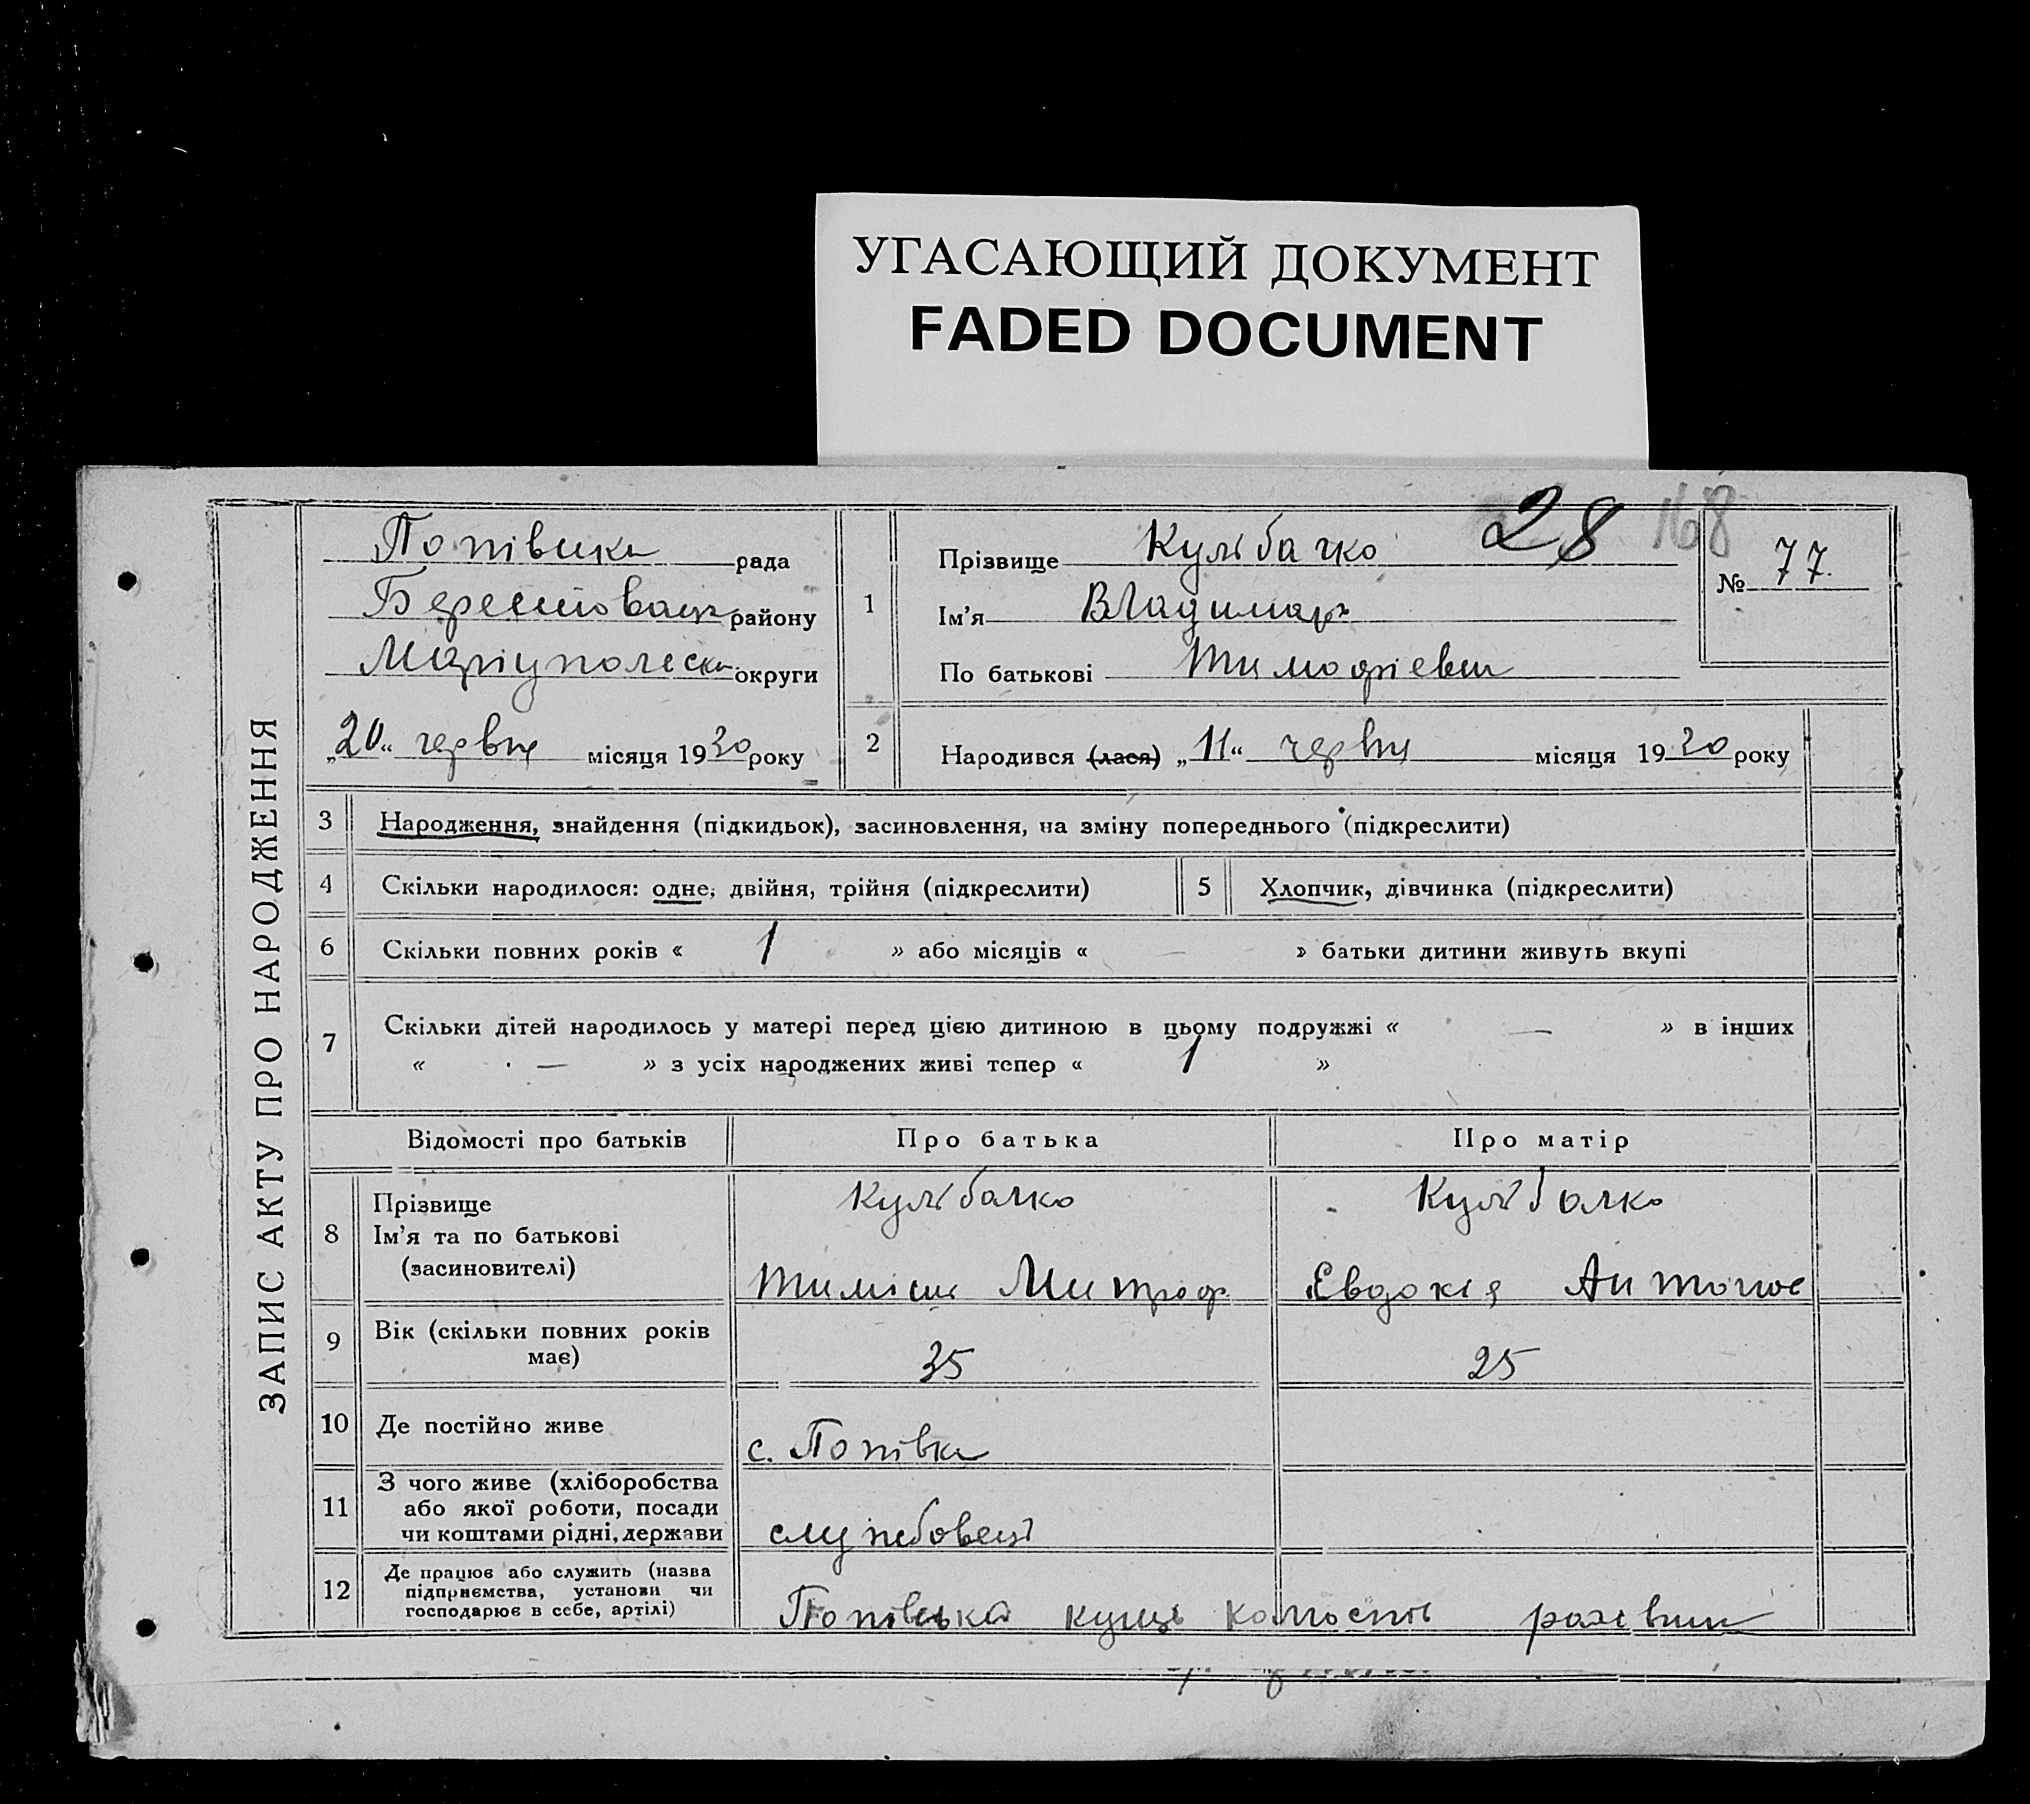 УГАСАЮЩИЙ ДОКУМЕНТ
FADED DOCUMENT
28 168
ЗАПИС АКТУ ПРО НАРОДЖЕННЯ
Попівська рада
району
округи
„20“ червня місяця 1930 року
1
Прізвище Кульбачко
Ім'я Владимир
По батькові Тимофієвич
№ 77
2
Народився (лася) „11“ червня місяця 1930 року
3 Народження, знайдення (підкидьок), засиновлення, на зміну попереднього (підкреслити)
4 Скільки народилося: одне, двійня, трійня (підкреслити) 5 Хлопчик, дівчинка (підкреслити)
6 Скільки повних років « 1 » або місяців « — » батьки дитини живуть вкупі
7 Скільки дітей народилось у матері перед цією дитиною в цьому подружжі « — » в інших
« — » з усіх народжених живі тепер « 1 »
Відомості про батьків Про батька Про матір
8 Прізвище Кульбачко Кульбачко
Ім'я та по батькові
(засиновителі) Митроф Евдокія Антонов
9 Вік (скільки повних років
має) 35 25
10 Де постійно живе с. Попівка
11 З чого живе (хліборобства
або якої роботи, посади
чи коштами рідні, держави службовець
12 Де працює або служить (назва
підприємства, установи чи
господарює в себе, артілі) Попівська